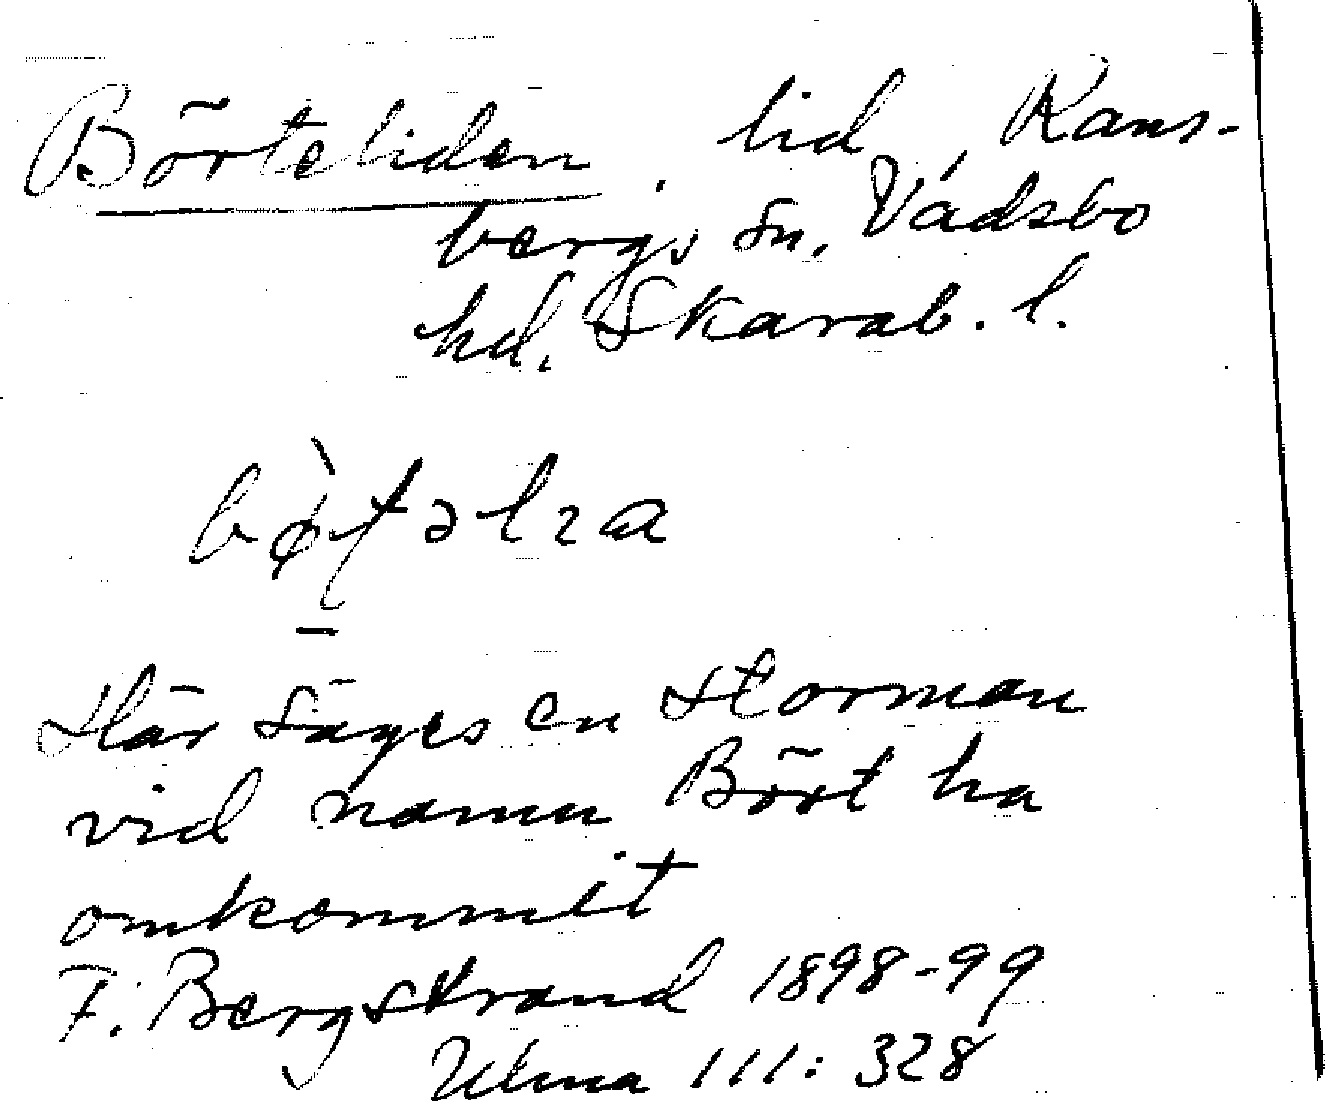 Börteliden, lid, Rans-
bergs sn, Vadsbo
hd. Skarab. l.
Här säges en storman
vid namn Bört ha
omkommit
F. Bergstrand 1898-99
Ulma 111: 328